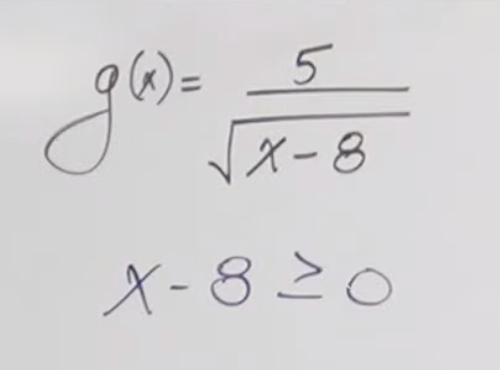 g(x) = 5 / √(x - 8)
x - 8 ≥ 0